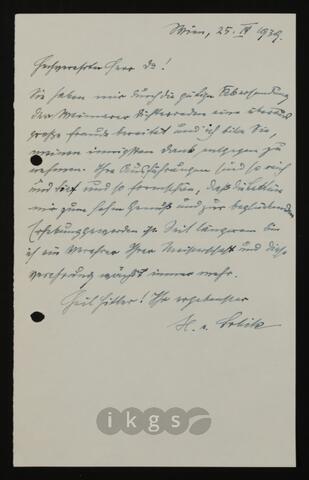 Wien, 25. IV 1939.
Hochverehrter Herr Dr!
Sie haben mir durch die gütige Übersendung
der Weimarer Dichterreden eine überaus
große Freude bereitet und ich bitte Sie,
meinen innigsten Dank entgegen zu
nehmen. Ihre Ausführungen sind so reich
und tief und so formschön, daß die Lektüre
mir zum hohen Genuß und zur beglückenden
Erhebung geworden ist. Seit langem bin
ich ein Verehrer Ihrer Meisterschaft und diese
Verehrung wächst immer mehr.
Heil Hitler! Ihr ergebenster
H. v. Srbik
ikgs